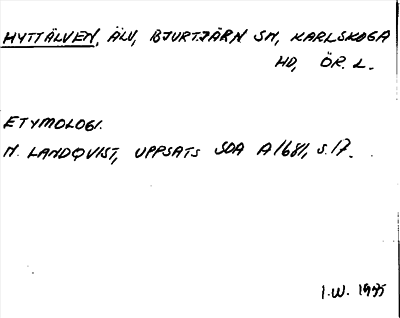 HYTTÄLVEN, ÄLV, BJURTJÄRN SN, KARLSKOGA
HD, ÖR. L.
ETYMOLOGI.
N. LANDQVIST, UPPSATS SOA A 1681, S. 17.
I.W.